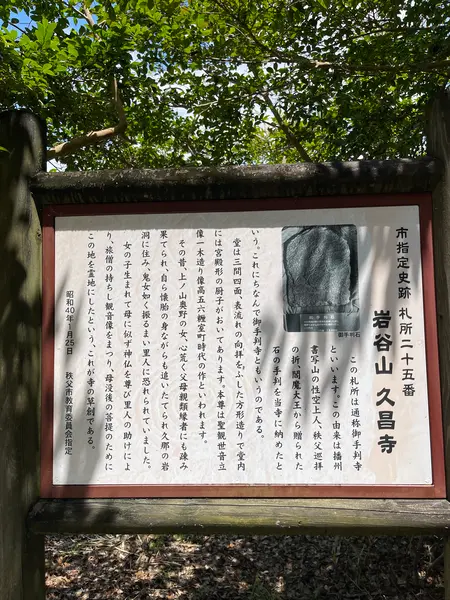 市指定史跡 札所二十五番
岩谷山 久昌寺
この札所は通称御手判寺
といいます。この由来は播州
書写山の性空上人、秩父巡拝
の折、閻魔大王から贈られた
石の手判を当寺に納めたと
いう。これにちなんで御手判寺ともいうのである。
堂は三間四面、表流れの向拝を付した方形造りで堂内
には宮殿形の厨子がおいてあります。本尊は聖観世音立
像一木造り像高五六糎室町時代の作といわれます。
その昔、上ノ山奥野の女、心荒く父母親類縁者にも疎み
果てられ、自ら懐胎の身ながらも追いたてられ久那の岩
洞に住み、鬼女如く振るまい里人に恐れられていました。
女の子生まれて母に似ず神仏を尊び里人の助けによ
り、旅僧の持ちし観音像をまつり、母没後の菩提のために
この地を霊地にしたという、これが寺の草創である。
昭和40年1月25日 秩父市教育委員会指定
御手判石